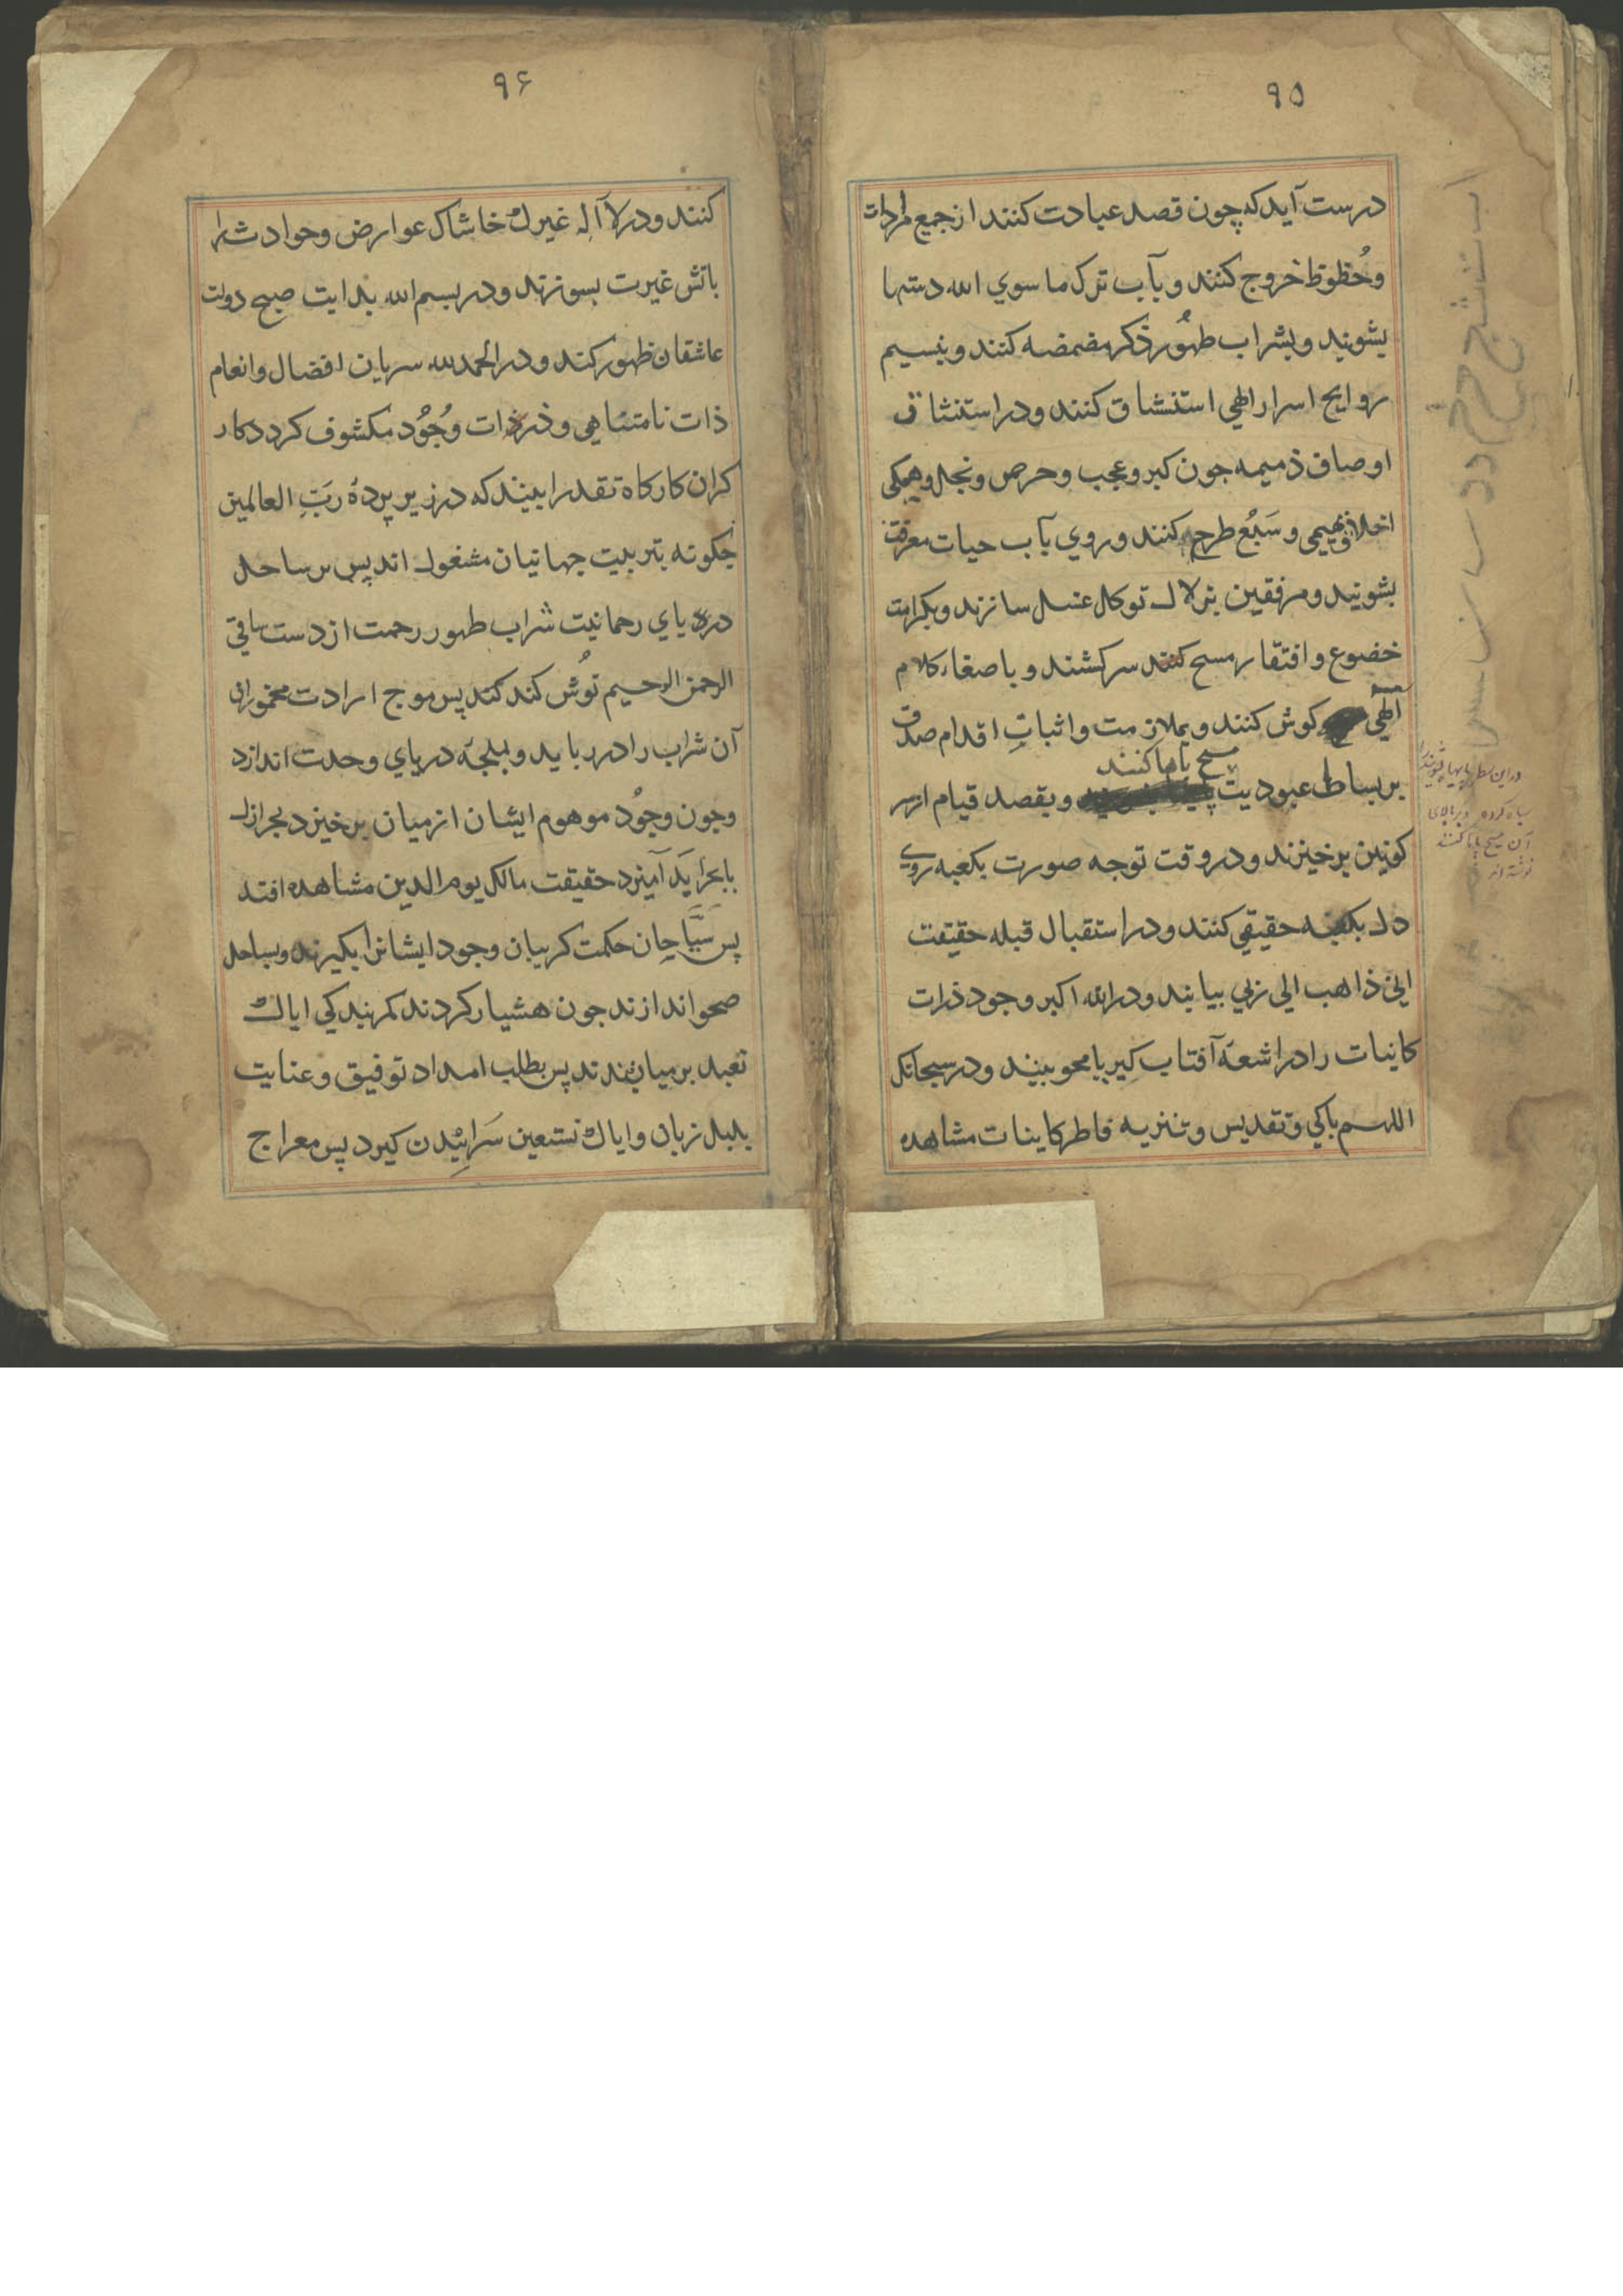 ۹۵
درست آید که چون قصد عبادت کنند از جمیع مرادات
وحُظوظ خروج کنند و بآب ترک ما سوي الله دستها
بشویند و بشراب طهُور ذکر مضمضه کنند و بنسیم
روایح اسرار الهي استنشاق کنند و در استنشاق
اوصاف ذمیمه جون کبر و عجب و حرص و بخل و همکی
اخلاق بهیمی و سَبُع طرح کنند و روي بآب حیات معرفت
بشویند و مرفقین بزلال توکل غسل سازند و بکرامت
خضوع و افتقار مسح کنند سر کشند و باصغاء کلام
الهي کوش کنند و بملازمت و اثباتِ اقدام صدق
مسح پاها کنند
بر بساط عبودیت و بقصد قیام از سر
کونین برخیزند و در وقت توجه صورت بکعبه روي
دل بکعبه حقیقي کنند و در استقبال قبله حقیقت
اني ذاهب الي ربي بیابند و در الله اکبر وجود ذرات
کاینات را در اشعهٔ آفتاب کبریا محو بینند و در سبحانک
اللهم باکي و تقدیس و تنزیه فاطر کاینات مشاهده
در این سطر پایها بشویند را
سیاه کرده و بر بالای
آن مسح پاها کنند
نوشته اند
۹۶
کنند و در لا آله غیرك خاشاک عوارض و حوادث را
باتش غیرت بسوزند و در بسم الله بدایت صبح دولت
عاشقان ظهور کند و در الحمد لله سریان افضال و انعام
ذات نامتناهي و ذر ذرات وُجُود مکشوف کردد کار
کران کارکاه تقدر ا بیند که در زیر پردهٔ ربِّ العالمین
جکونه بتربیت جهانیان مشغول اند پس بر ساحل
دریاي رحمانیت شراب طهور رحمت از دست ساقي
الرحمن الرحیم نُوش کند کند پس موج ارادت مخموران
آن شراب را در رباید و بلجّه دریاي وحدت اندازد
و جون وجُود موهوم ایشان از میان برخیزد بحر ازل
با بحر ابَد آمیزد حقیقت مالک یوم الدین مشاهده افتد
پس سَبَّاحان حکمت کریبان وجود ایشانرا بکیرند و بساحل
صحو اندازند جون هشیار کردند کمر بندکي ایاك
نعبد بر میان بندند پس بطلب امداد توفیق و عنایت
بلبل زبان و ایاك نستعین سَراییْدن کیرد پس معراج